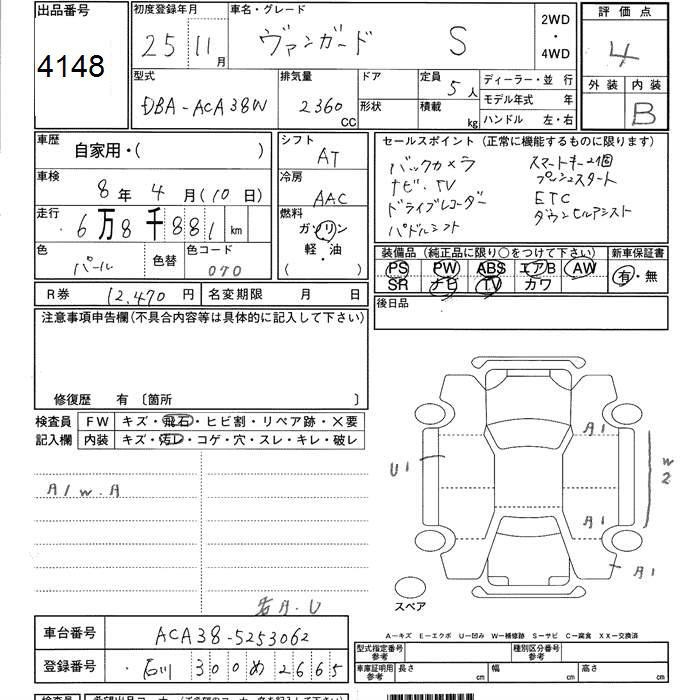 出品番号 初度登録年月 車名・グレード 2WD ・ 4WD 評価点
4148 25 11月 ヴァンガード S 4
型式 排気量 ドア 定員 5人 ディーラー・並 行 外装 内装
DBA-ACA38W 2360 CC 形状 積載 kg モデル年式 年 B
ハンドル 左・右
車歴 自家用・( ) シフト AT セールスポイント (正常に機能するものに限ります)
バックカメラ スマートキー2個
車検 8年 4月 (10日) 冷房 AAC ナビ、TV プッシュスタート
ドライブレコーダー ETC
走行 6万8千881 km 燃料 ガソリン パドルシフト ダウンヒルアシスト
軽・油
( )
色 パール 色替 色コード 070 装備品 (純正品に限り○をつけて下さい) 新車保証書
PS PW ABS エアB AW 有・無
R券 12,470円 名変期限 月 日 SR ナビ TV カワ
注意事項申告欄(不具合内容等は具体的に記入して下さい) 後日品
修復歴 有 〔箇所 〕
検査員 FW キズ・飛石・ヒビ割・リペア跡・×要
記入欄 内装 キズ・汚レ・コゲ・穴・スレ・キレ・破レ
A1 W.A
A1
U1
W2
A1
A1
スペア
車台番号 ACA38-5253062
A-キズ E-エクボ U-凹み W-補修跡 S-サビ C-腐食 XX-交換済
登録番号 石川 300 め 2665
型式指定番号 種別区分番号
車庫証明用参考 長さ cm 幅 cm 高さ cm